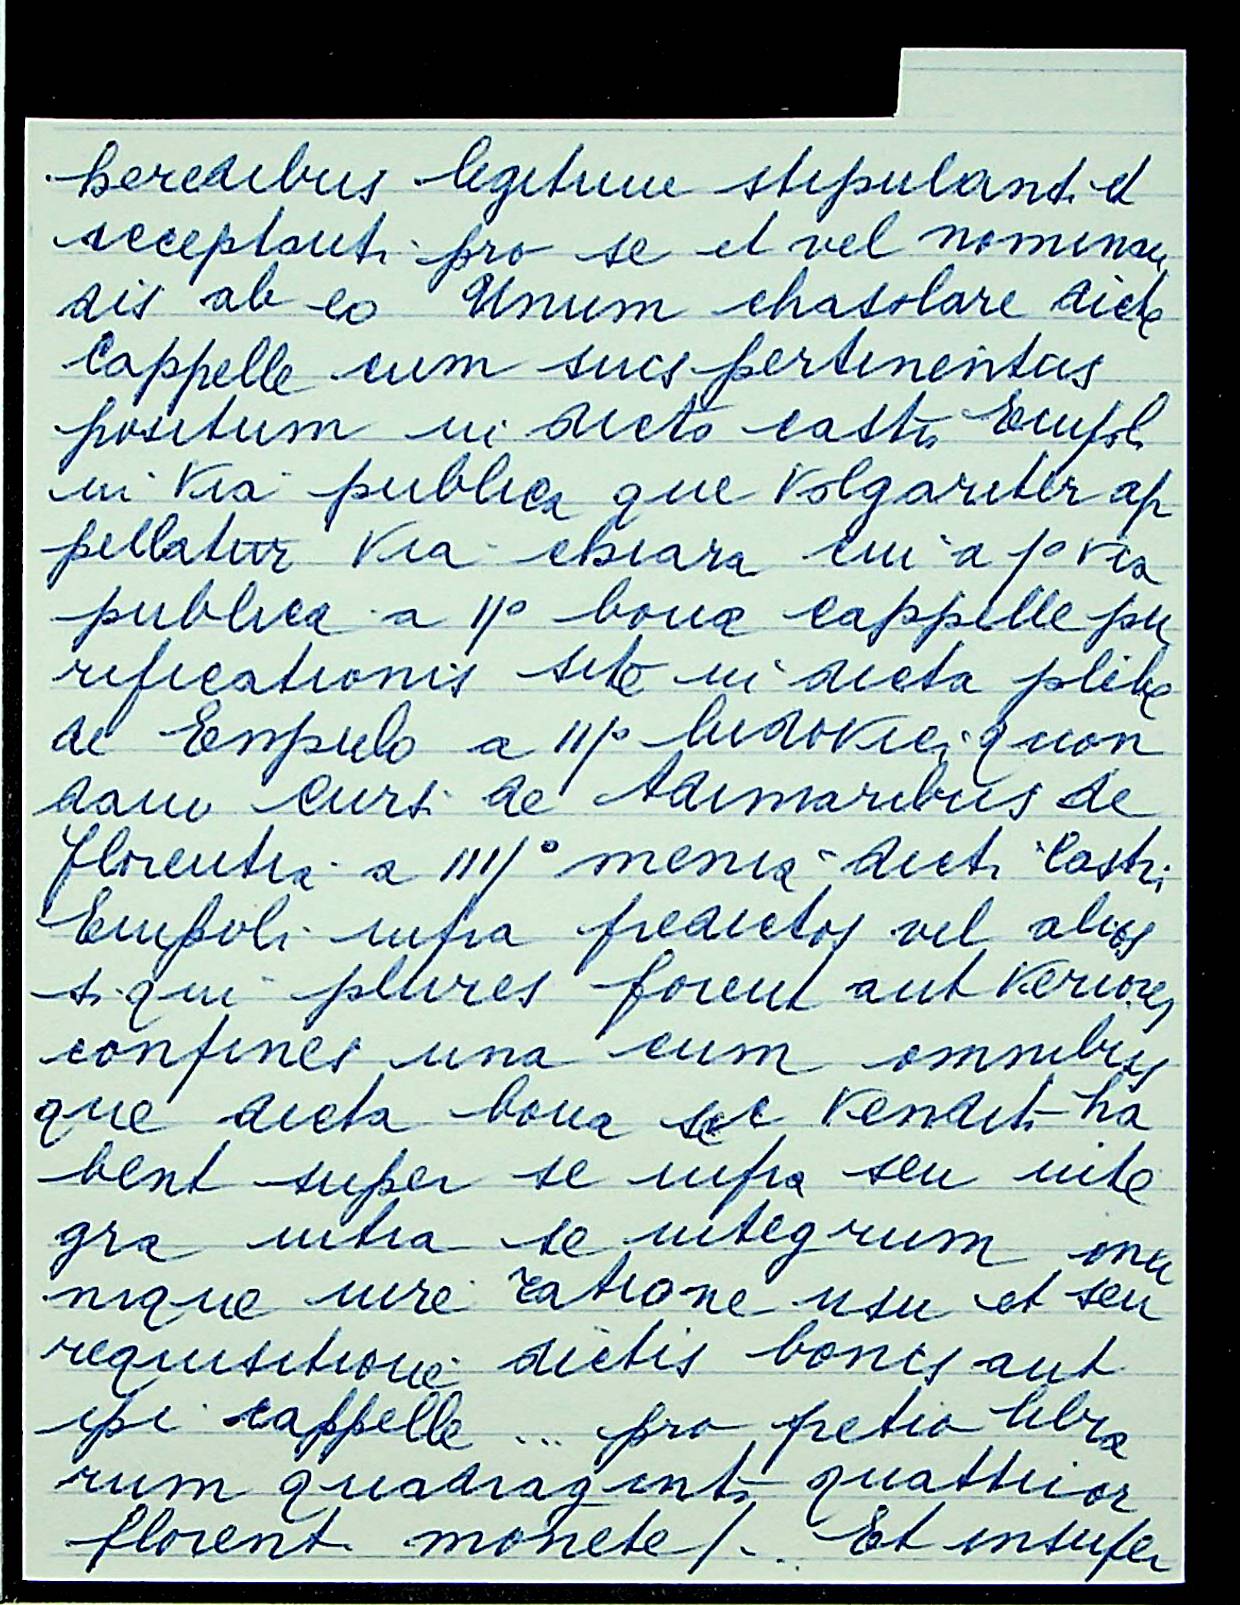 heredibus legitime stipulanti et
acceptanti pro se et vel nominan
dis ab eo Unum chasolare dicte
Cappelle cum suis pertinentiis
positum in dicto castro Empoli
in via publica que volgariter ap
pellatur via chiara cui a 1º via
publica a IIº bona cappelle pu
rificationis site in dicta plebe
de Empulo a IIIº ludovici quon
dam Cursi de Adimaribus de
florentia a IIIIº menia dicti Castri
Empoli infra predictos vel alios
si qui plures forent aut veriores
confines una cum omnibus
que dicta bona sic vendita ha
bent super se infra seu inte
gra intra se integrum om
nique iure ratione usu et seu
requisitione dictis bonis aut
ipi cappelle ... pro pretio libra
rum quadraginta quattuor
florent. monete /... Et insuper